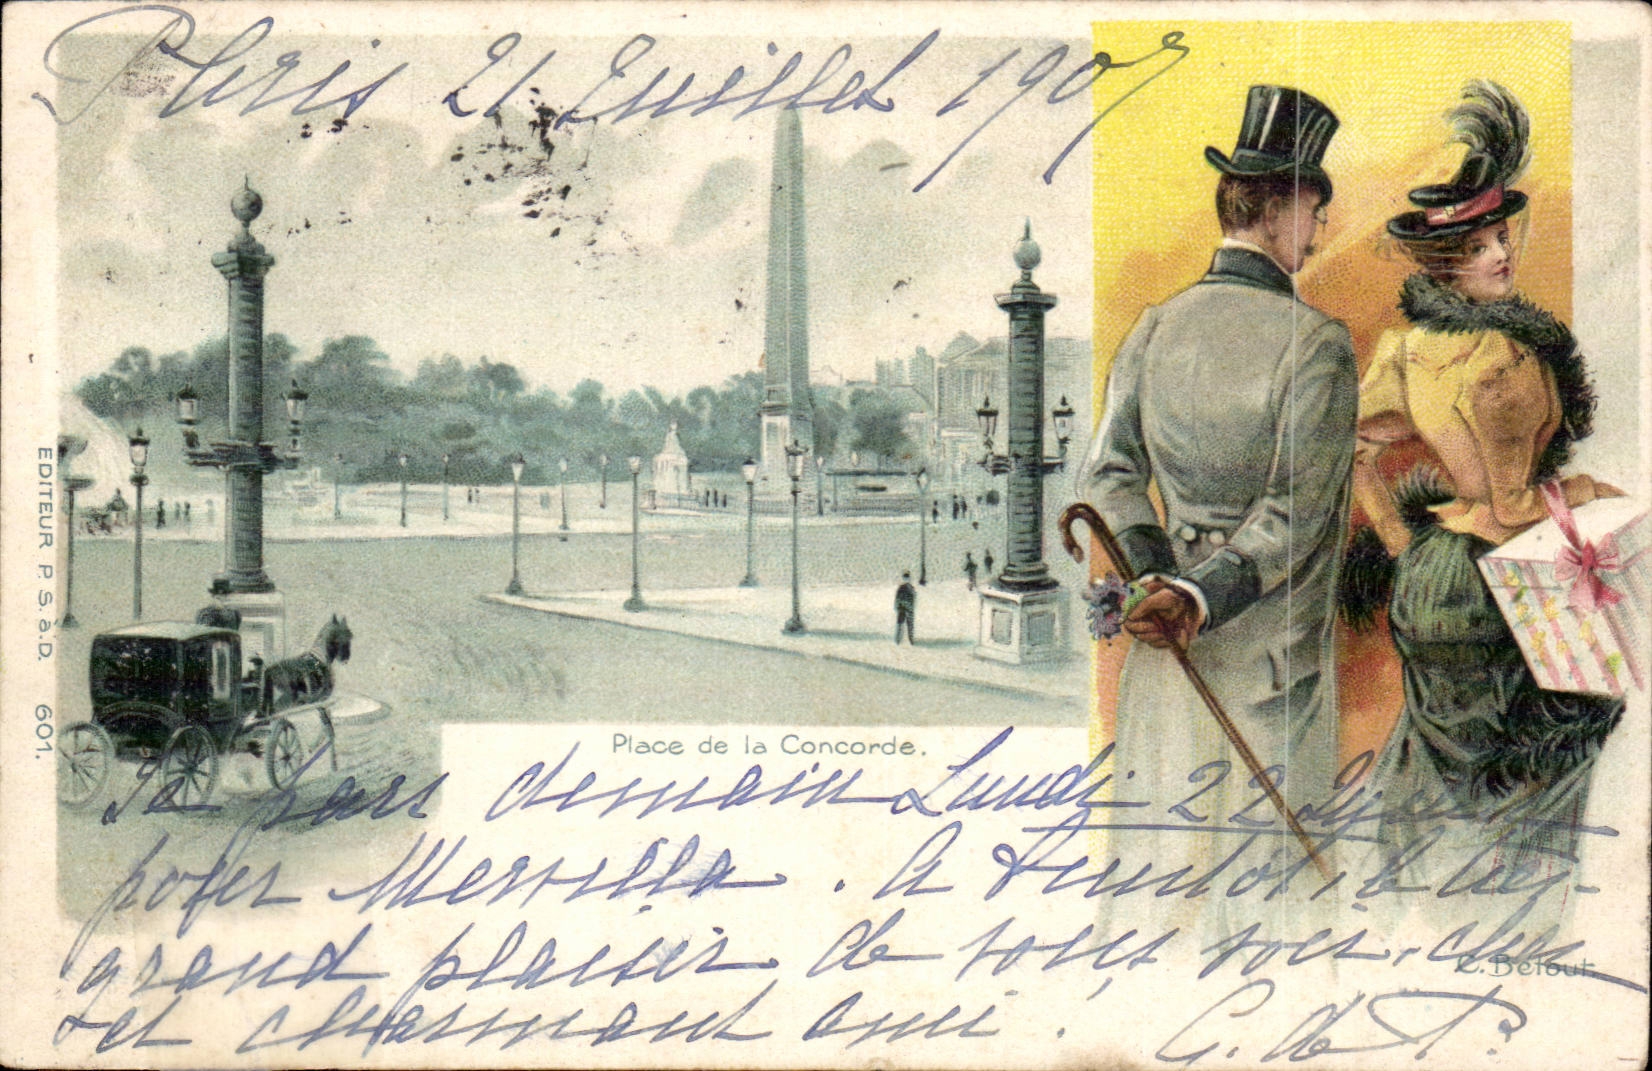 Paris 21 Juillet 1907
EDITEUR P. S. à. D. 601.
Place de la Concorde.
Je pars demain Lundi 22
poser Merville. A bientôt, le très
grand plaisir de vous voir, cher
et charmant ami!
C. Bétout
C. de P.